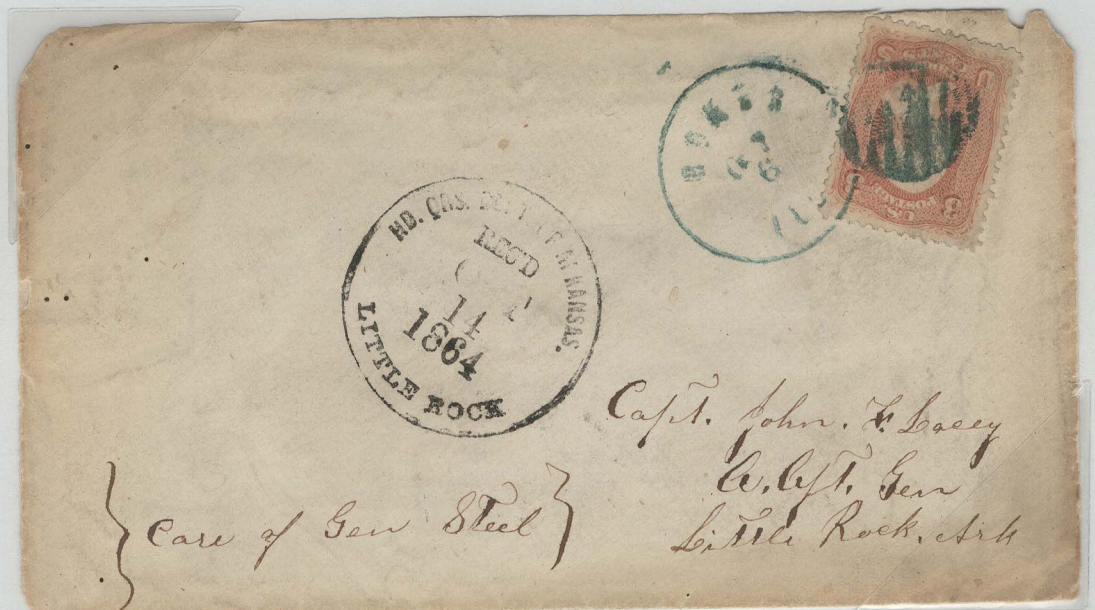 HD. QRS. DEPT OF ARKANSAS.
REC'D
14
1864
LITTLE ROCK
U.S. POSTAGE
3
Capt. John. F. Lacey
A. Ajt. Gen
Little Rock, Ark
Care of Gen Steel